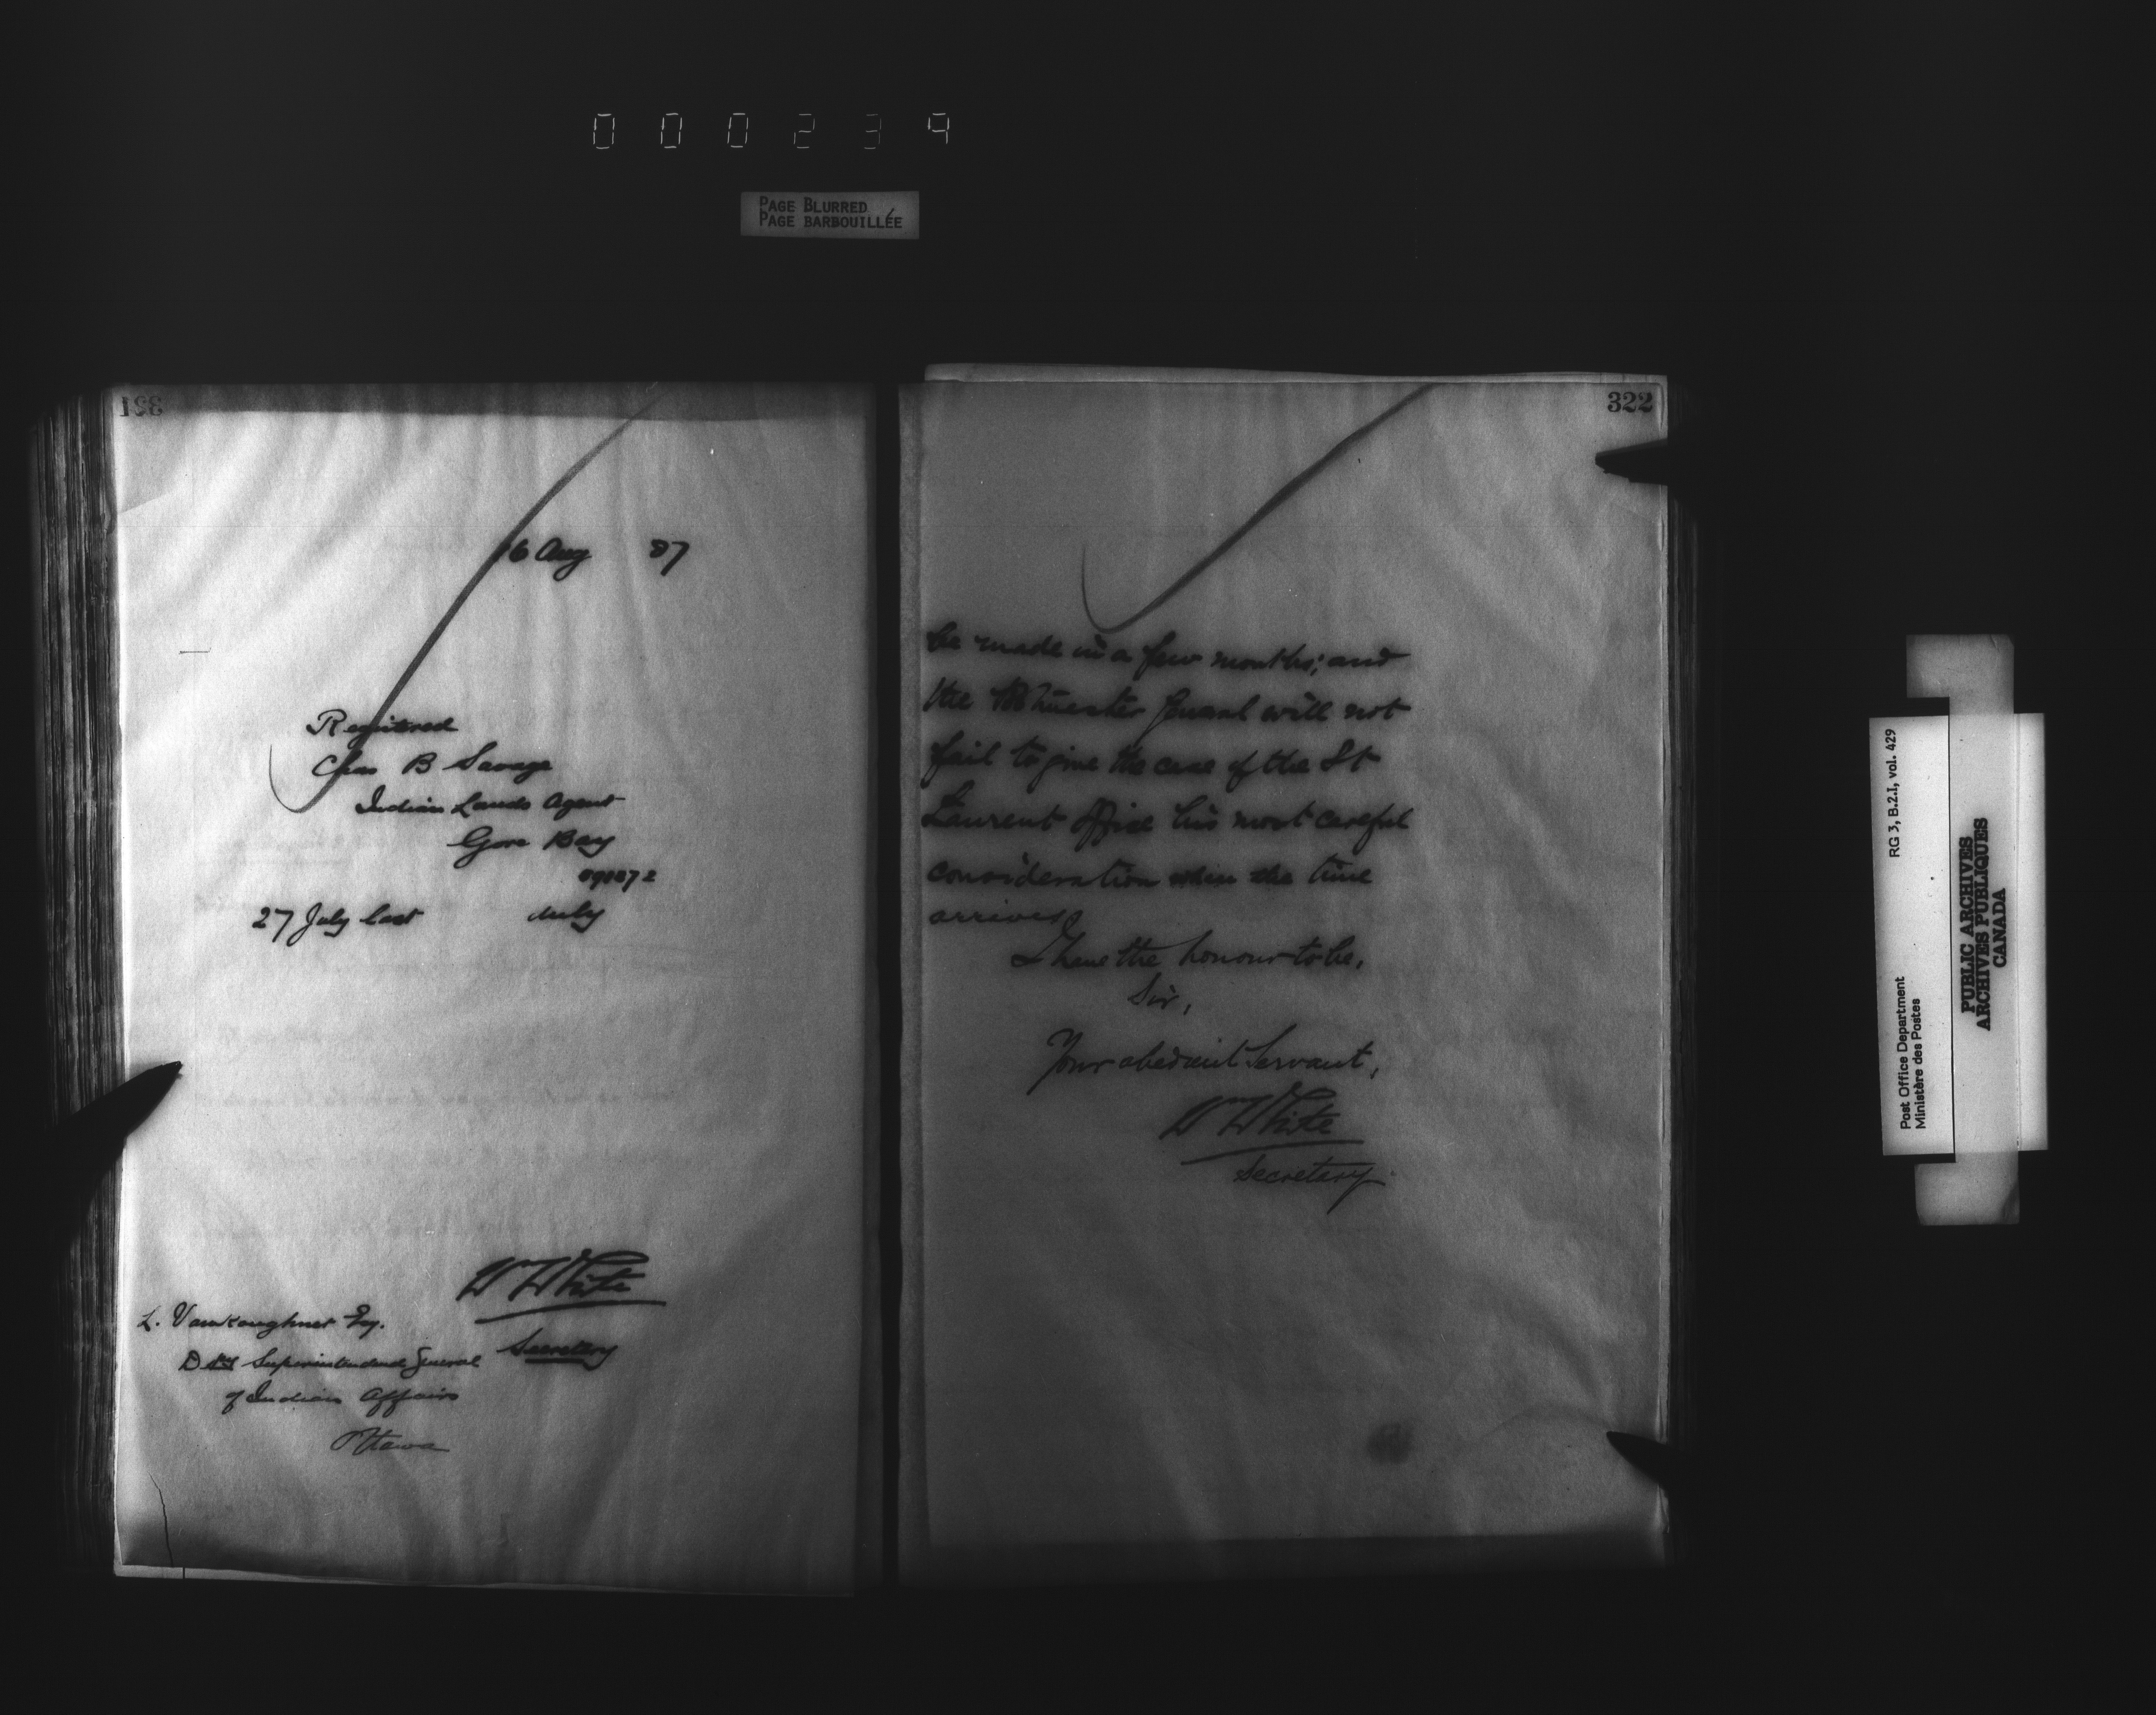 000234
PAGE BLURRED
PAGE BARBOUILLÉE
321
16 Aug 87
Registered
Chas B Savage
Indian Lands Agent
Gore Bay
27 July last duly
Wm White
Secretary
L. Vankoughnet Esq.
Superintendent General
of Indian Affairs
Ottawa
322
be made in a few months; and
the Postmaster General will not
fail to give the case of the St
Laurent Office his most careful
consideration when the time
arrives
I have the honour to be,
Sir,
Your obedient Servant,
Wm White
Secretary.
Post Office Department
Ministère des Postes
RG 3, B.2.I, vol. 429
PUBLIC ARCHIVES
ARCHIVES PUBLIQUES
CANADA